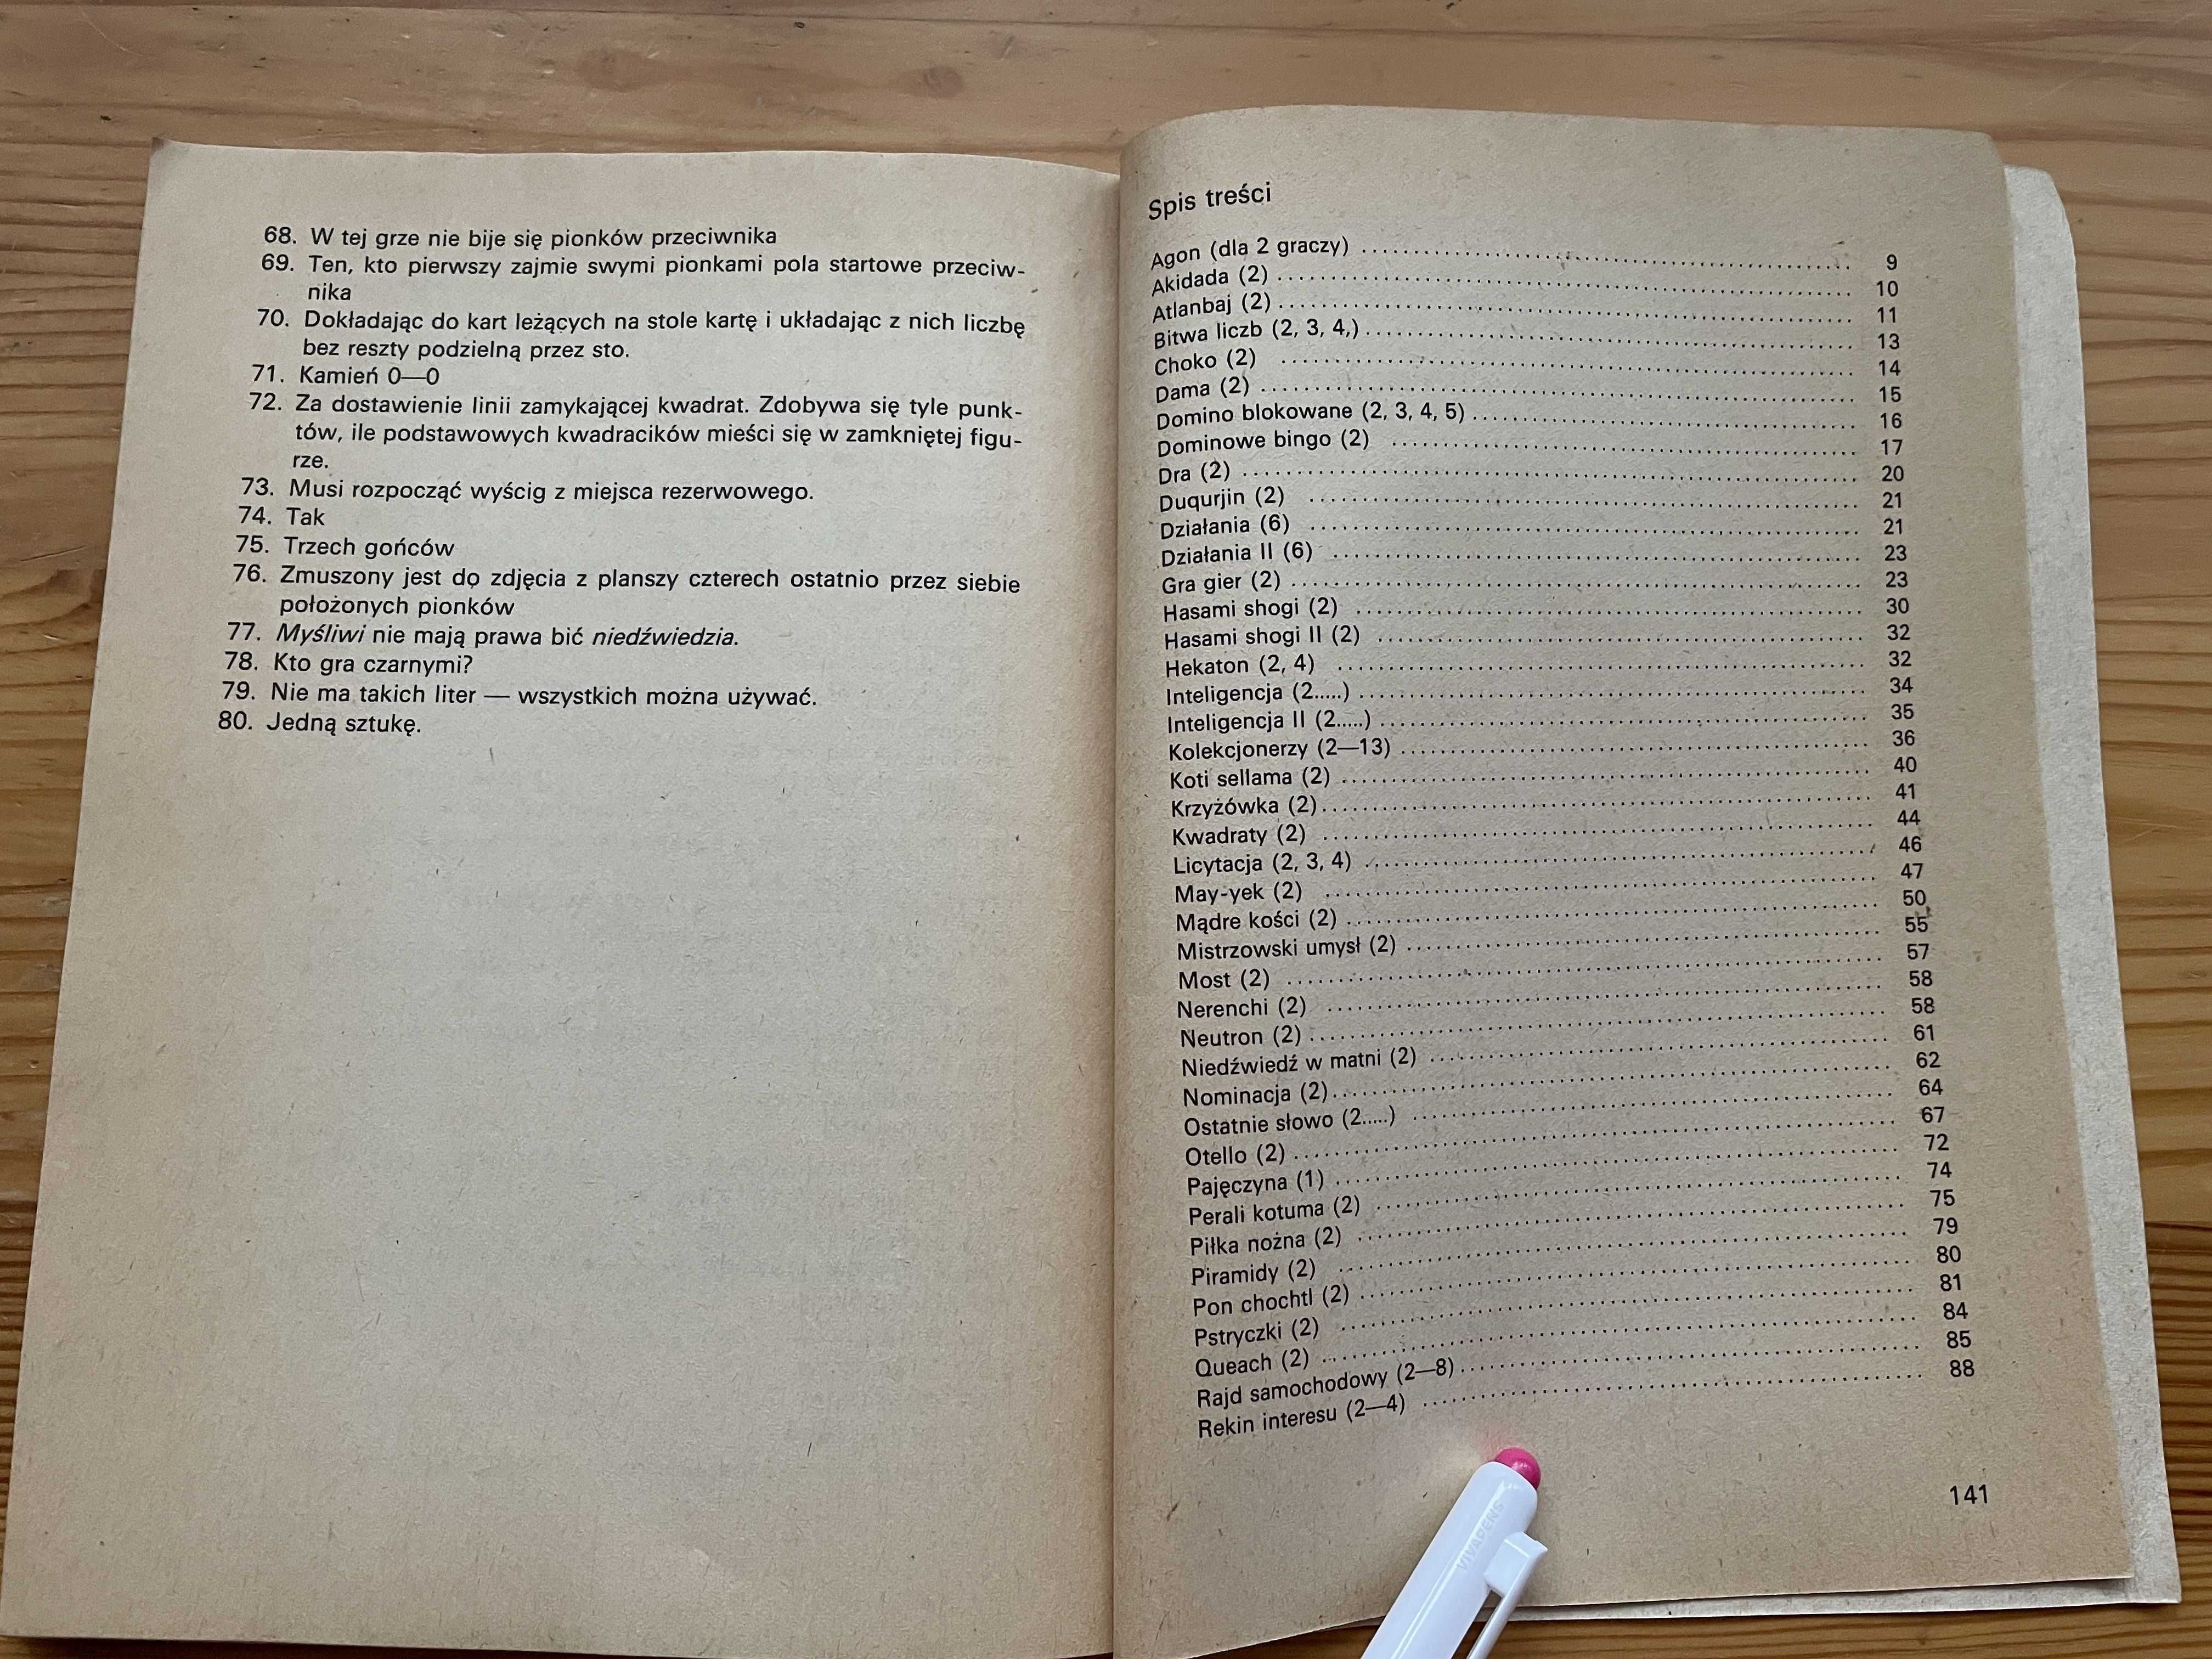 68. W tej grze nie bije się pionków przeciwnika
69. Ten, kto pierwszy zajmie swymi pionkami pola startowe przeciw-
nika
70. Dokładając do kart leżących na stole kartę i układając z nich liczbę
bez reszty podzielną przez sto.
71. Kamień 0—0
72. Za dostawienie linii zamykającej kwadrat. Zdobywa się tyle punk-
tów, ile podstawowych kwadracików mieści się w zamkniętej figu-
rze.
73. Musi rozpocząć wyścig z miejsca rezerwowego.
74. Tak
75. Trzech gońców
76. Zmuszony jest do zdjęcia z planszy czterech ostatnio przez siebie
położonych pionków
77. Myśliwi nie mają prawa bić niedźwiedzia.
78. Kto gra czarnymi?
79. Nie ma takich liter — wszystkich można używać.
80. Jedną sztukę.
Spis treści
Agon (dla 2 graczy) .......... 9
Akidada (2) .......... 10
Atlanbaj (2) .......... 11
Bitwa liczb (2, 3, 4,) .......... 13
Choko (2) .......... 14
Dama (2) .......... 15
Domino blokowane (2, 3, 4, 5) .......... 16
Dominowe bingo (2) .......... 17
Dra (2) .......... 20
Duqurjin (2) .......... 21
Działania (6) .......... 21
Działania II (6) .......... 23
Gra gier (2) .......... 23
Hasami shogi (2) .......... 30
Hasami shogi II (2) .......... 32
Hekaton (2, 4) .......... 32
Inteligencja (2.....) .......... 34
Inteligencja II (2.....) .......... 35
Kolekcjonerzy (2—13) .......... 36
Koti sellama (2) .......... 40
Krzyżówka (2) .......... 41
Kwadraty (2) .......... 44
Licytacja (2, 3, 4) .......... 46
May-yek (2) .......... 47
Mądre kości (2) .......... 50
Mistrzowski umysł (2) .......... 55
Most (2) .......... 57
Nerenchi (2) .......... 58
Neutron (2) .......... 58
Niedźwiedź w matni (2) .......... 61
Nominacja (2) .......... 62
Ostatnie słowo (2.....) .......... 64
Otello (2) .......... 67
Pajęczyna (1) .......... 72
Perali kotuma (2) .......... 74
Piłka nożna (2) .......... 75
Piramidy (2) .......... 79
Pon chochtl (2) .......... 80
Pstryczki (2) .......... 81
Queach (2) .......... 84
Rajd samochodowy (2—8) .......... 85
Rekin interesu (2—4) .......... 88
141
VIVAPENS